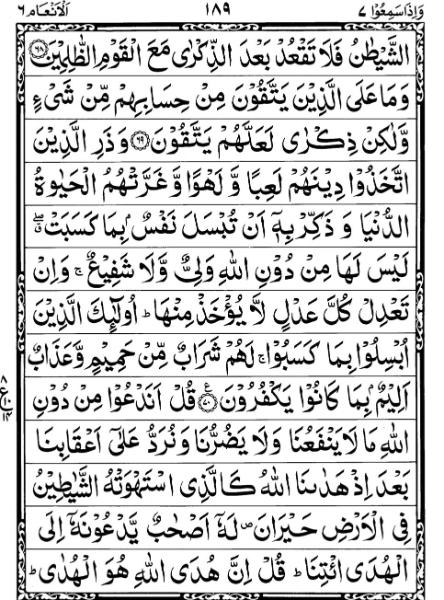 وَاِذَاسَمِعُوْا ٧ ١٨٩ اَلْاَنْعَام ٦
الشَّيْطٰنُ فَلَا تَقْعُدْ بَعْدَ الذِّكْرٰى مَعَ الْقَوْمِ الظّٰلِمِيْنَ ﴿٦٨﴾
وَمَا عَلَى الَّذِيْنَ يَتَّقُوْنَ مِنْ حِسَابِهِمْ مِّنْ شَىْءٍ
وَّلٰكِنْ ذِكْرٰى لَعَلَّهُمْ يَتَّقُوْنَ ﴿٦٩﴾ وَذَرِ الَّذِيْنَ
اتَّخَذُوْا دِيْنَهُمْ لَعِبًا وَّ لَهْوًا وَّ غَرَّتْهُمُ الْحَيٰوةُ
الدُّنْيَا وَ ذَكِّرْ بِهٖٓ اَنْ تُبْسَلَ نَفْسٌۢ بِمَا كَسَبَتْ ۖۗ
لَيْسَ لَهَا مِنْ دُوْنِ اللّٰهِ وَلِىٌّ وَّلَا شَفِيْعٌ ۚ وَاِنْ
تَعْدِلْ كُلَّ عَدْلٍ لَّا يُؤْخَذْ مِنْهَا ؕ اُولٰٓئِكَ الَّذِيْنَ
اُبْسِلُوْا بِمَا كَسَبُوْا ۚ لَهُمْ شَرَابٌ مِّنْ حَمِيْمٍ وَّعَذَابٌ
اَلِيْمٌۢ بِمَا كَانُوْا يَكْفُرُوْنَ ﴿٧٠﴾ قُلْ اَنَدْعُوْا مِنْ دُوْنِ
اللّٰهِ مَا لَا يَنْفَعُنَا وَلَا يَضُرُّنَا وَنُرَدُّ عَلٰٓى اَعْقَابِنَا
بَعْدَ اِذْ هَدٰىنَا اللّٰهُ كَالَّذِى اسْتَهْوَتْهُ الشَّيٰطِيْنُ
فِى الْاَرْضِ حَيْرَانَ ۪ لَهٗٓ اَصْحٰبٌ يَّدْعُوْنَهٗٓ اِلَى
الْهُدَى ائْتِنَا ؕ قُلْ اِنَّ هُدَى اللّٰهِ هُوَ الْهُدٰى ؕ
٨
ع
١٤